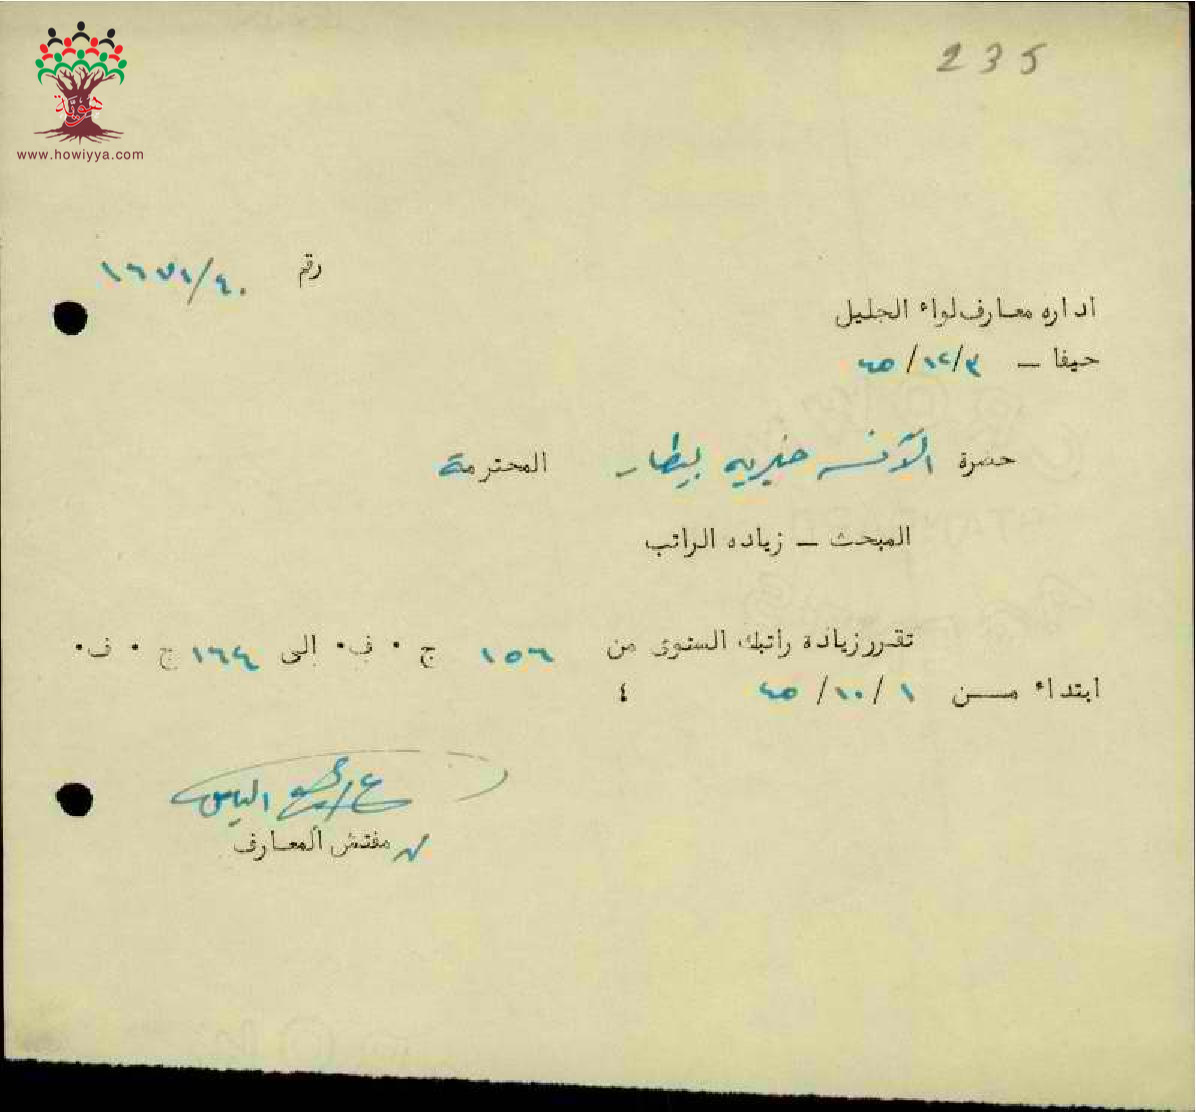 235
هوية
www.howiyya.com
رقم ١٦٧١/٤٠
اداره معارف لواء الجليل
حيفا – ٤٥/١٢/٣
حضرة الآنسه خيريه بيطار المحترمة
المبحث – زياده الراتب
تقرر زيادة راتبك السنوى من ١٥٦ ج . ف . الى ١٦٤ ج . ف .
ابتداء من ٤٥/١٠/١ ٤
الياس
مفتش المعارف